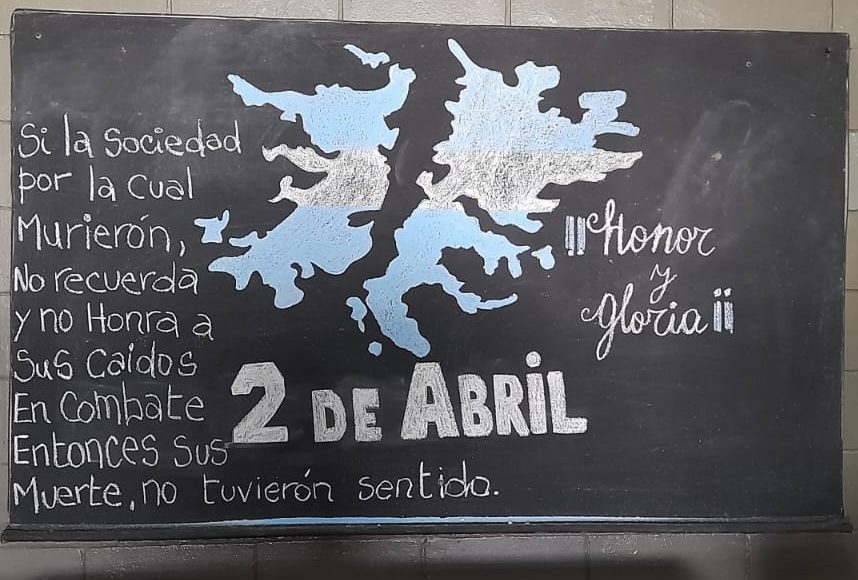 Si la Sociedad
por la Cual
Murierón,
No recuerda
y no Honra a
Sus Caídos
En Combate
Entonces Sus
Muerte, no tuvierón sentido.
¡¡Honor
y
Gloria¡¡
2 DE ABRIL